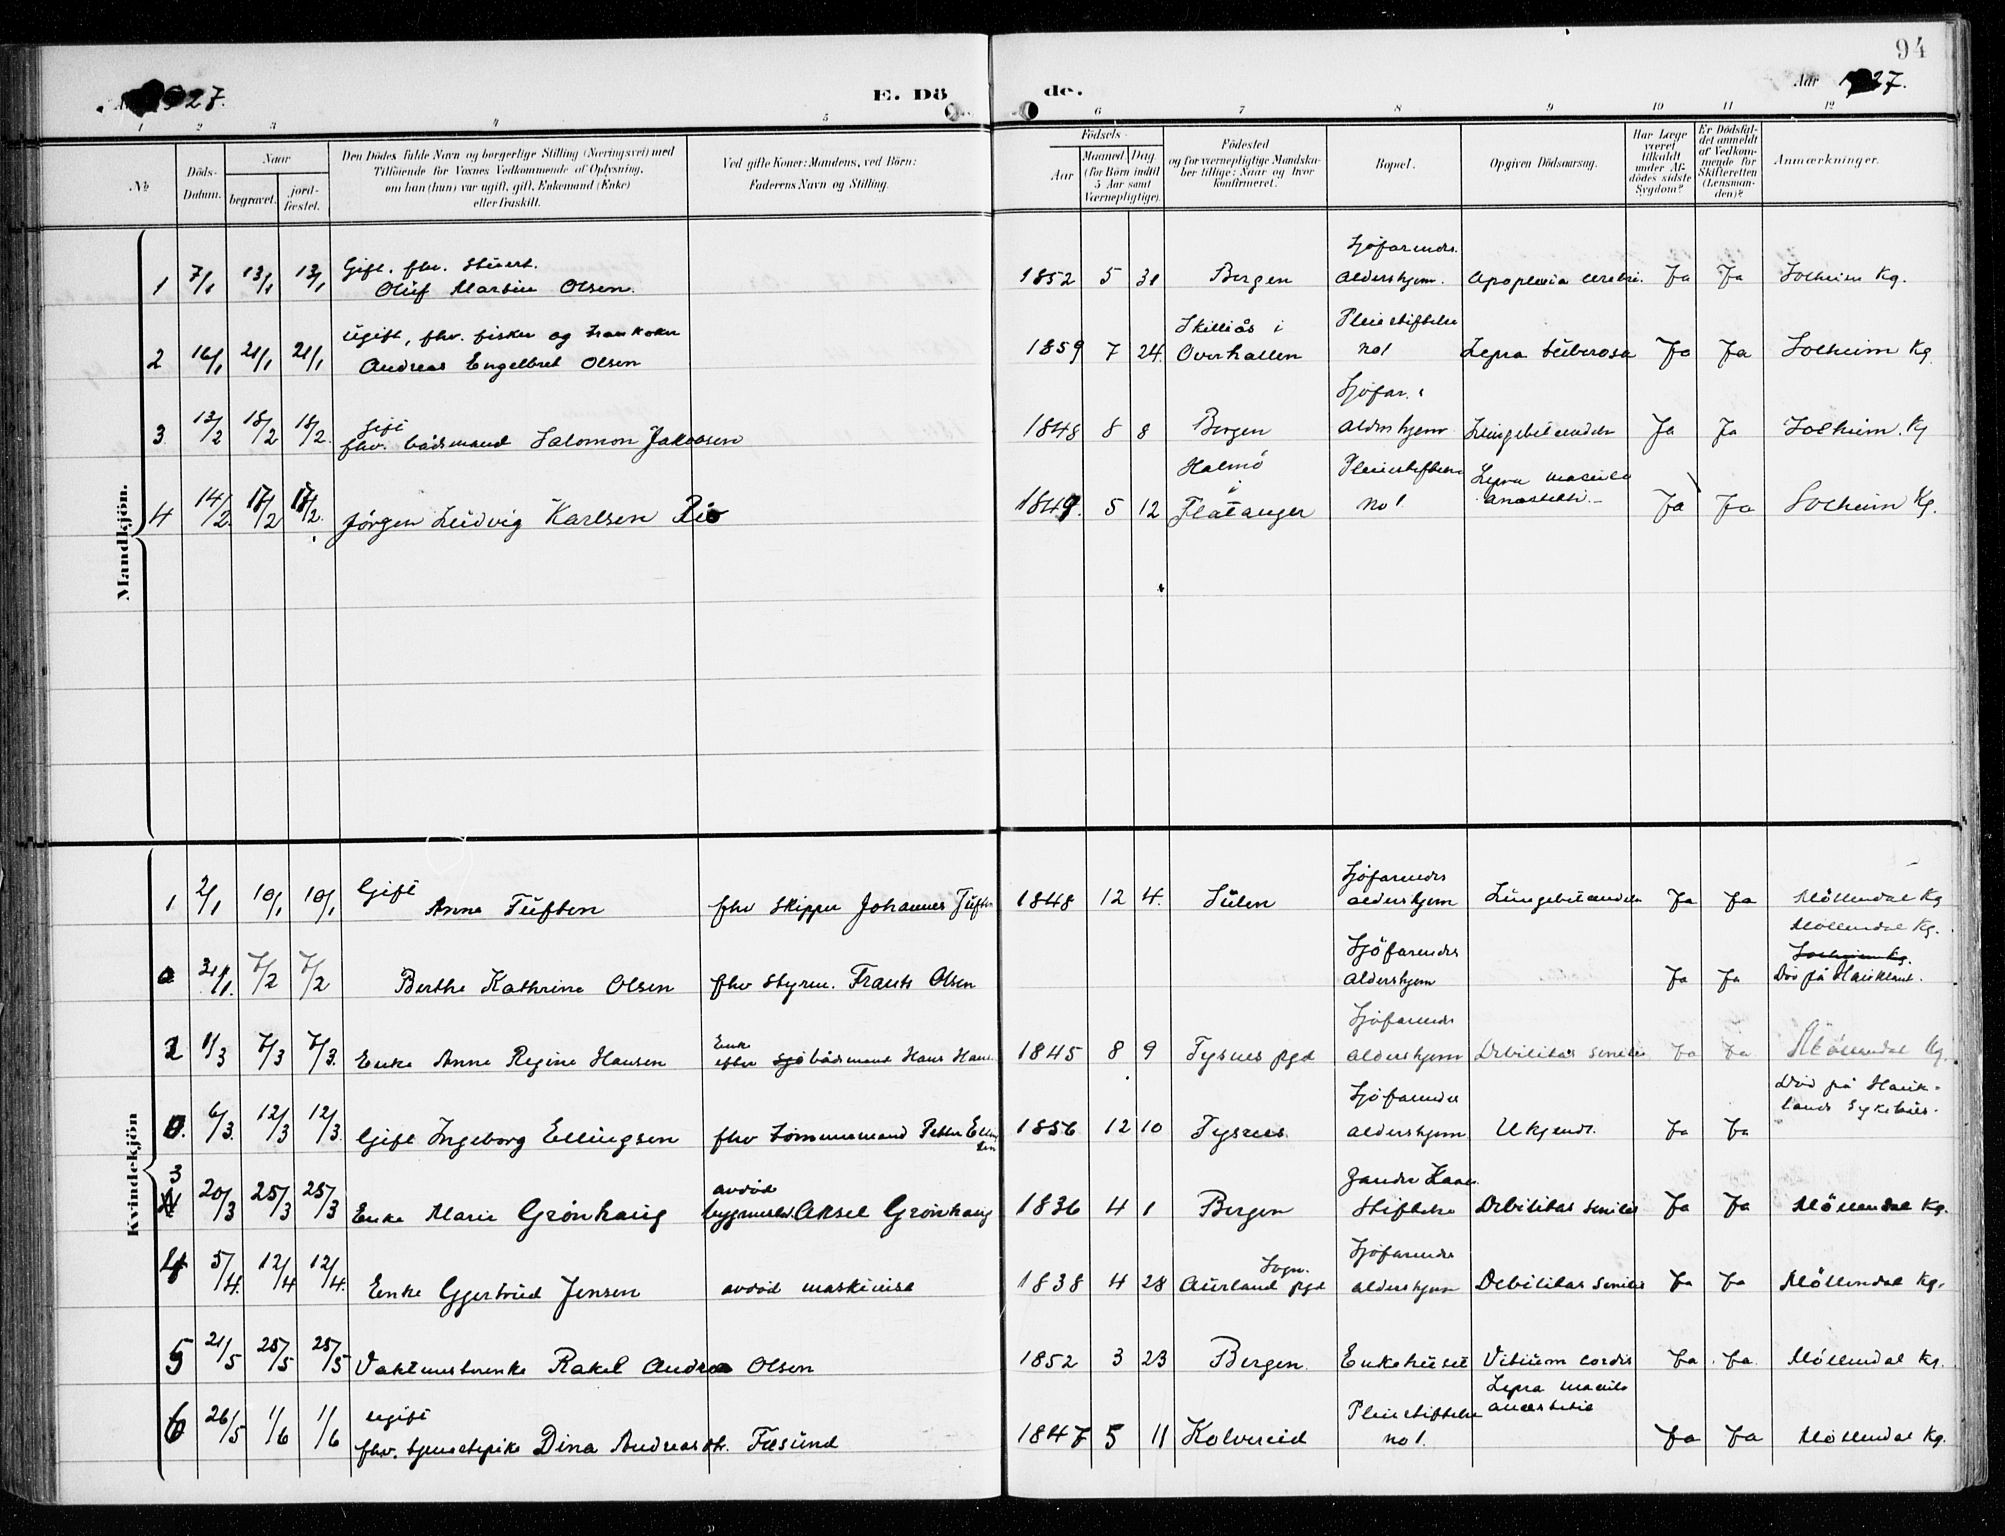 94
1927.
E. Dö
de.
Aar 1927.
1 2 3 4 5 6 7 8 9 10 11 12
№
Döds-Datum.
Naar
begravet.
jord-fæstet.
Den Dödes fulde Navn og borgerlige Stilling (Næringsvei) med
Tilföiende for Voxnes Vedkommende af Oplysning,
om han (hun) var ugift, gift, Enkemand (Enke)
eller fraskilt.
Ved gifte Koner: Mandens, ved Börn:
Faderens Navn og Stilling.
Födsels-
Aar
Maaned Dag
(for Börn indtil
5 Aar samt
Værnepligtige).
Födested
og for værnepligtige Mandska-
ber tillige: Naar og hvor
konfirmeret.
Bopæl.
Opgiven Dödsaarsag.
Har Læge
været
tilkaldt
under Af-
dödes sidste
Sygdom?
Er Dödsfal-
det anmeldt
af Vedkom-
mende for
Skifteretten
(Lensman-
den)?
Anmærkninger.
Mandkjön.
Gift. fhv. Stuert. Sjøfarendes
1 7/1 13/1 13/1 Oluf Martin Olsen. 1852 5 31 Bergen Aldershjem. Apoplexia cerebri. Ja Ja Solheim Kg.
Ugift, fhv. fisker og trankoker Skillås i Pleiestiftelse
2 16/1 21/1 21/1 Andreas Engelbret Olsen 1859 7 24. Overhallen No 1 Lepra tuberosa Ja Ja Solheim Kg
Gift Sjøfar. s
3. 13/2 18/2 18/2. fhv. bådsmand Salomon Jakobsen 1848 8 8 Bergen Aldershjem Lungebetændelse Ja Ja Solheim. Kg
Halmö i Pleiestiftelse Lepra maculo
4 14/2. 17/2 18/2. Jörgen Ludvig Karlsen 1849. 5 12 Flatanger No 1. anæstetic Ja Ja Solheim Kg.
Kvindekjön
Gift Sjøfarendes
1 2/1 10/1 10/1 Anna Tuften fhv Skipper Johannes Tuften 1848 12 4. Sulen aldershjem Lungebetændelse Ja Ja Möllendal Kg
Möllendal Kg.
Sjøfarendes Solheim Kg.
0 31/1. 7/2 7/2 Berthe Kathrine Olsen fhv Styrm. Frants Olsen Aldershjem Ja Ja Död på Haukland.
Enke Sjøfarendes
2 1/3 7/3 7/3. Enke Anne Regine Hansen efter sjö bådsmand Hans Hansen 1845 8 9 Tysnes pgd aldershjem Debilitas senilis Ja Ja Möllendal Kg.
Sjøfarendes Död på Hauk-
lands Sykehus.
0. 6/3. 12/3 12/3. Gift Ingeborg Ellingsen fhv tömmermand Petter Ellingsen 1856 12 10 Tysnes aldershjem Ukjendt. Ja Ja
avdöd Zander Kaaes
3 20/3 25/3 25/3 Enke Marie Grönhaug bygmester Aksel Grönhaug 1836 4 1 Bergen Stiftelse Debilitas senilis Ja Ja Möllendal Kg.
Sogn. Sjøfarendes
4 5/4. 12/4 12/4. Enke Ggertrud Jensen avdöd maskinist 1838 4 28 Aurland pgd aldershjem Debilitas senilis Ja Ja Möllendal Kg.
5 21/5 25/5 25/5 Vaktmesterenke Rakel Andrea Olsen 1852 3 23 Bergen Enkehuset Vitium cordis Ja. Ja. Möllendal Kg.
ugift Pleiestiftelse Lepra maculo
anæstetic
6 26/5 1/6 1/6 fhv. tjenestepike Dina Andreasdt. Fosund 1847 5 11 Kolvereid No 1. Ja Ja Möllendal Kg.